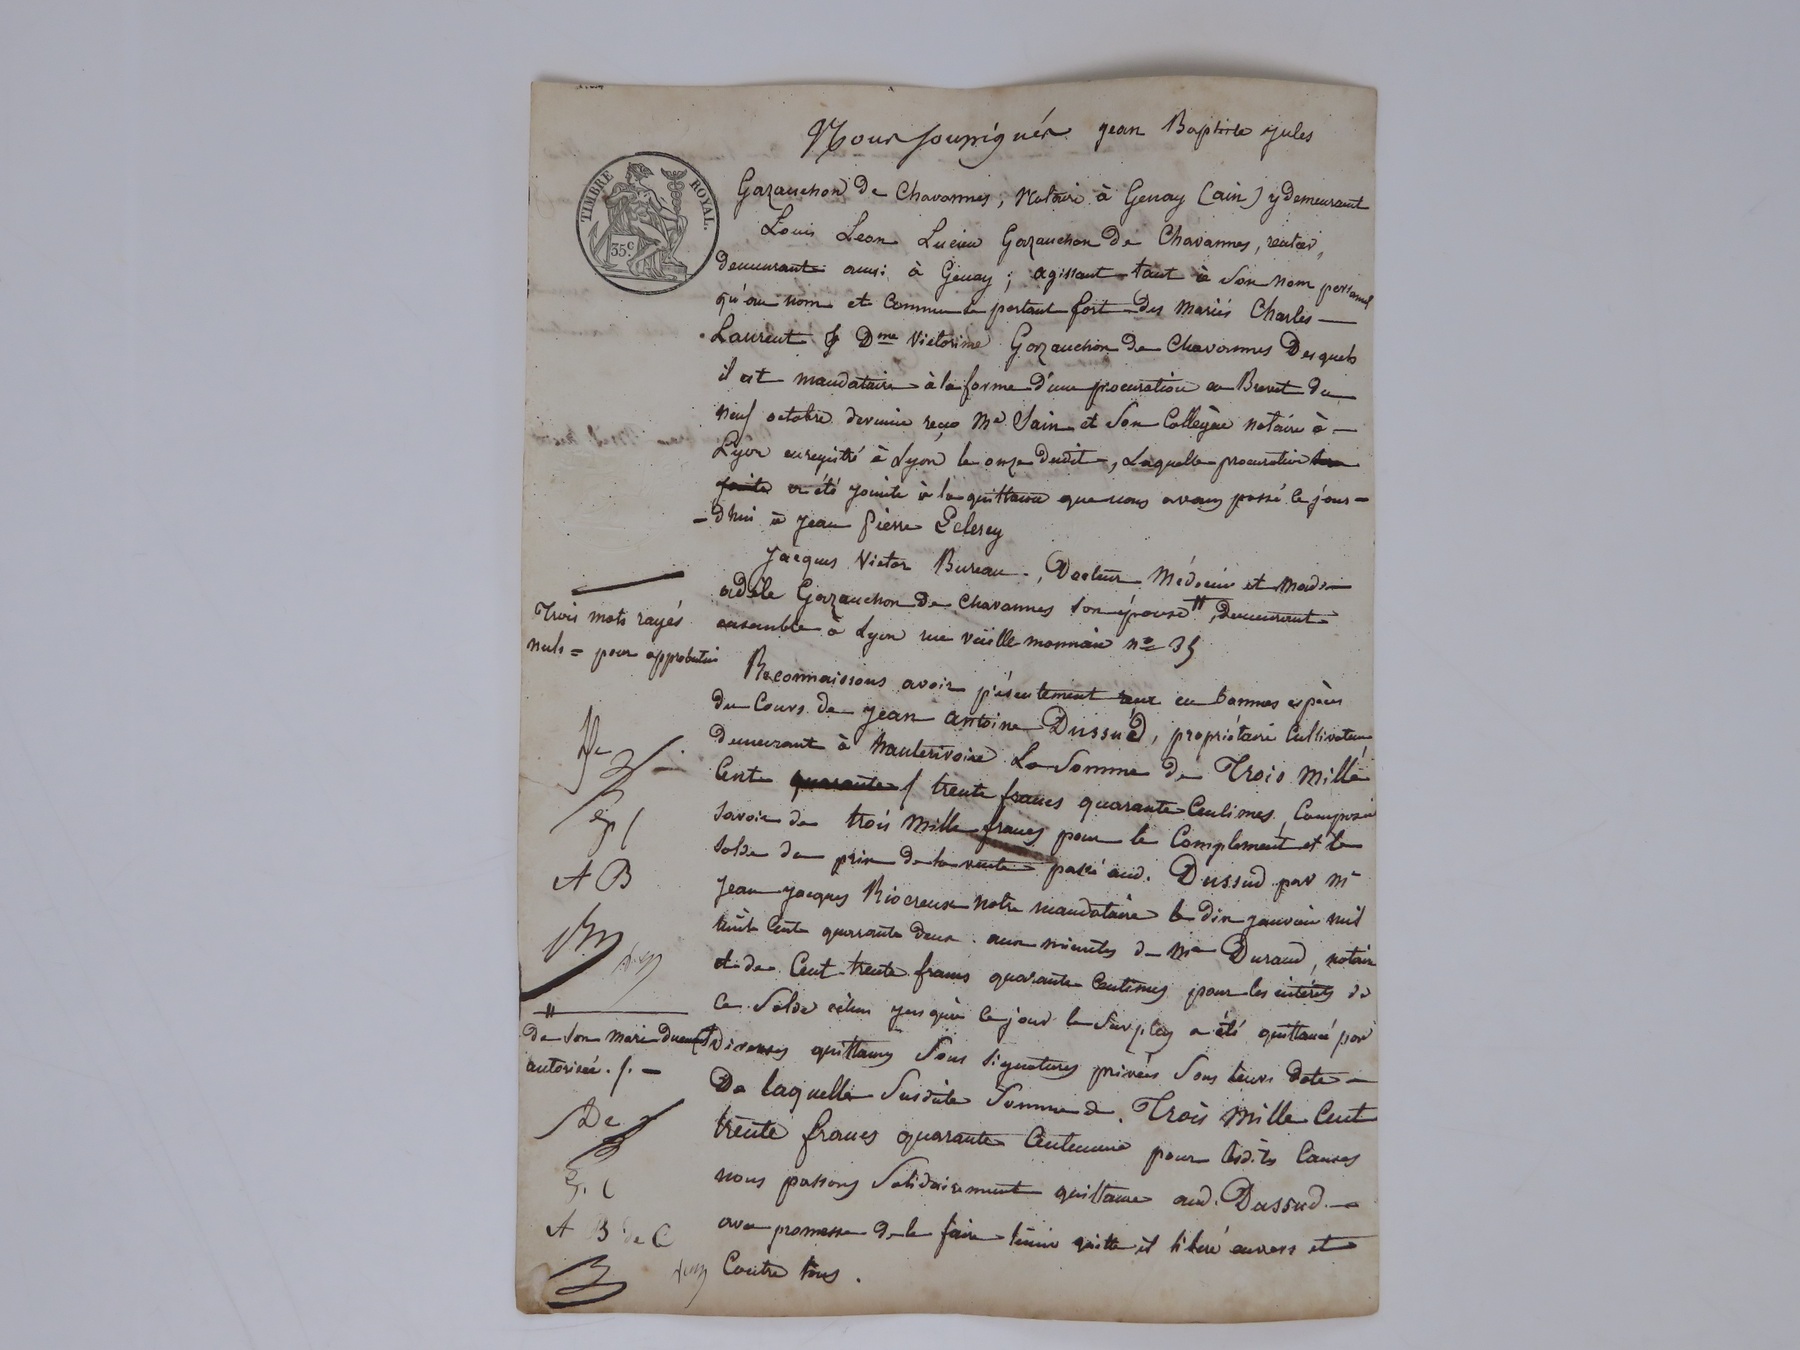 Nous soussignés jean Baptiste jules
TIMBRE ROYAL.
35c
Gazanchon de Chavannes, Notaire à Genay (ain) y demeurant
Louis Leon Lucien Gazanchon de Chavannes, rentier,
demeurant aussi à Genay; agissant tant à son nom personnel
qu'au nom et comme se portant fort des mariés Charles
Laurent & Dme Victorine Gazanchon de Chavannes Desquels
il est mandataire à la forme d'une procuration en Brevet du
neuf octobre dernier reçu Me Sain et son Collègue notaire à
Lyon enregistré à Lyon le onze dudit, Laquelle procuration
faite a été jointe à la quittance que nous avons passé ce jour-
-d'hui à jean pierre Leclercy
Jacques Victor Bureau, Docteur Médecin et Made
adèle Gazanchon de Chavannes son épouse " , demeurant
ensemble à Lyon rue vieille monnaie no 35
Trois mots rayés
nuls = pour approbation
Reconnaissons avoir présentement reçu en bonnes espèces
du Cours de jean antoine Dussud, propriétaire Cultivateur
demeurant à hauterivoire La Somme de Trois Mille
Cent quarante trente francs quarante Centimes, Composée
savoir de trois Mille francs pour le Complement et le
solde du prix de la vente passé aud. Dussud par Mr
jean jacques Riocreux notre mandataire le dix janvier mil
huit Cent quarante deux aux minutes de Me Durand, notaire
et de Cent trente francs quarante Centimes pour les intérêts de
Ce Solde échus jusqu'à Ce jour le Surplus a été quittancé par
Diverses quittances Sous signatures privées Sous leurs date
A B
"
de son mari dument
autorisée.
De laquelle Susdite Somme de Trois Mille Cent
trente francs quarante Centimes pour lesdites Causes
nous passons Solidairement quittance aud. Dussud
avec promesse de le faire tenir quitte et libéré envers et
Contre tous.
A B de C